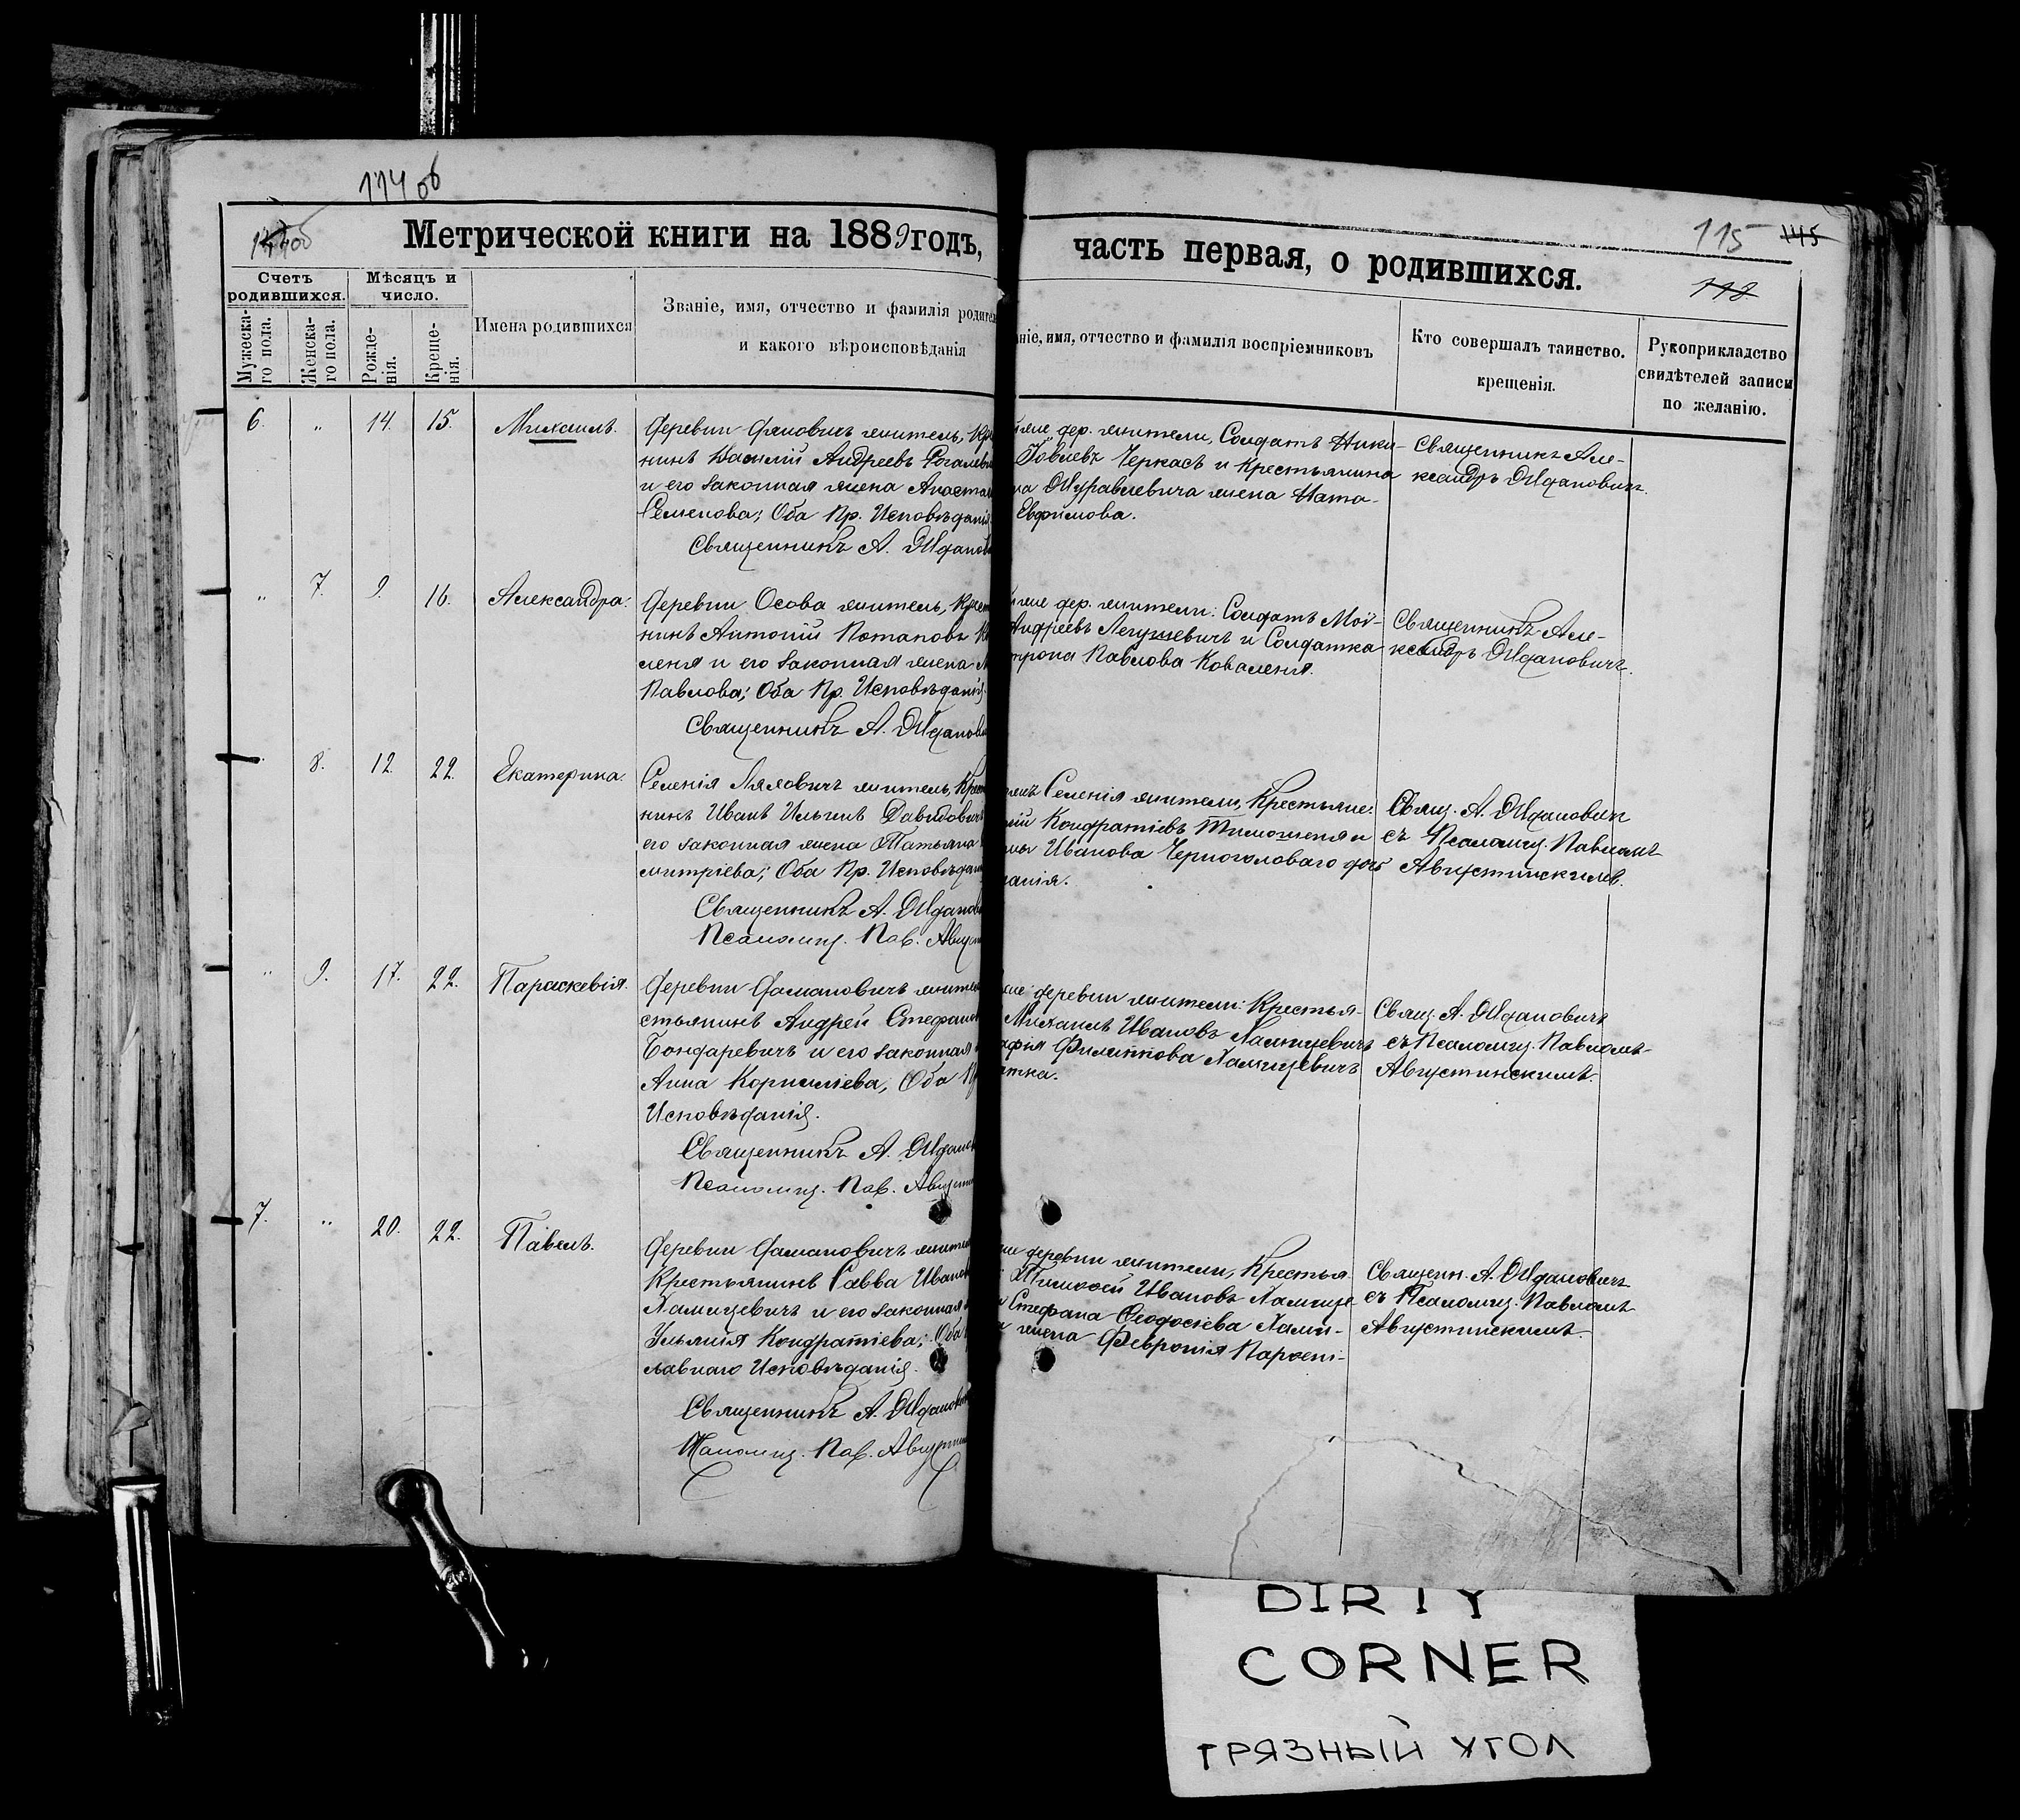 114 об
Метрической книги на 1889 годъ,
часть первая, о родившихся.
115
145
118
Счетъ родившихся.
Мѣсяцъ и число.
Мужеска-го пола.
Женска-го пола.
Рожде-нія.
Креще-нія.
Имена родившихся
Званіе, имя, отчество и фамилія родител
и какого вѣроисповѣданія
ніе, имя, отчество и фамилія воспріемниковъ
Кто совершалъ таинство.
крещенія.
Рукоприкладство
свидѣтелей записи
по желанію.
6. " 14. 15. Михаилъ.
Деревни житель, Кре
нинъ Василій Андреевъ
и его законная жена Анаста
Семенова; Оба Пр. Исповѣданія.
Священникъ А. Жданов
дер. жители, Солдатъ Ники-
Іовлевъ Черкасъ и Крестьянина
на Журавлевича жена Ната-
Евфимова.
Священникъ Але-
ксандръ Ждановичъ.
" 7. 9. 16. Александра.
Деревни Осова житель, Крест
нинъ Антоній Потаповъ Ко
леня и его законная жена
Павлова; Оба Пр. Исповѣданія.
Священникъ А. Жданов
дер. жители: Солдатъ Мой-
Андреевъ Легушевичъ и Солдатка
трона Павлова Коваленя.
Священникъ Але-
ксандръ Ждановичъ.
8. 12. 22. Екатерина.
Селенія Ляховичъ житель, Крест
нинъ Иванъ Ильинъ Давидович
его законная жена Татьяна
митріева; Оба Пр. Исповѣдан
Священникъ А. Жданов
Псаломщ. Пав. Август
Селенія жители, Крестьяне:
Кондратіевъ Тимошеня и
Иванова Черноголоваго дочь
Свящ. А. Ждановичъ
съ Псаломщ. Павломъ
Августинскимъ.
" 9. 17. 22. Параскевія.
Деревни Фамановичъ жител
стьянинъ Андрей Стефанов
Бондаревичъ и его законная
Анна Корниліева, Оба Пр
Исповѣданія.
Священникъ А. Жданов
Псаломщ. Пав. Августин
деревни жители: Крестья-
Михаилъ Ивановъ Хамицевичъ
афія Филиппова Хамицевичъ
Свящ. А. Ждановичъ
съ Псаломщ. Павломъ
Августинскимъ.
7. " 20. 22. Павелъ.
Деревни Фамановичъ жител
Крестьянинъ Савва Иванов
Хамицевичъ и его законная
Ульянія Кондратіева; Оба
славнаго Исповѣданія.
Священникъ А. Жданов
Псаломщ. Пав. Августин
деревни жители, Крестья
Тимофей Ивановъ Хамице
Стефана Ѳеодосіева Хами-
жена Февронія Парѳені-
Священн. А. Ждановичъ
съ Псаломщ. Павломъ
Августинскимъ.
DIRTY
CORNER
ГРЯЗНЫЙ УГОЛ